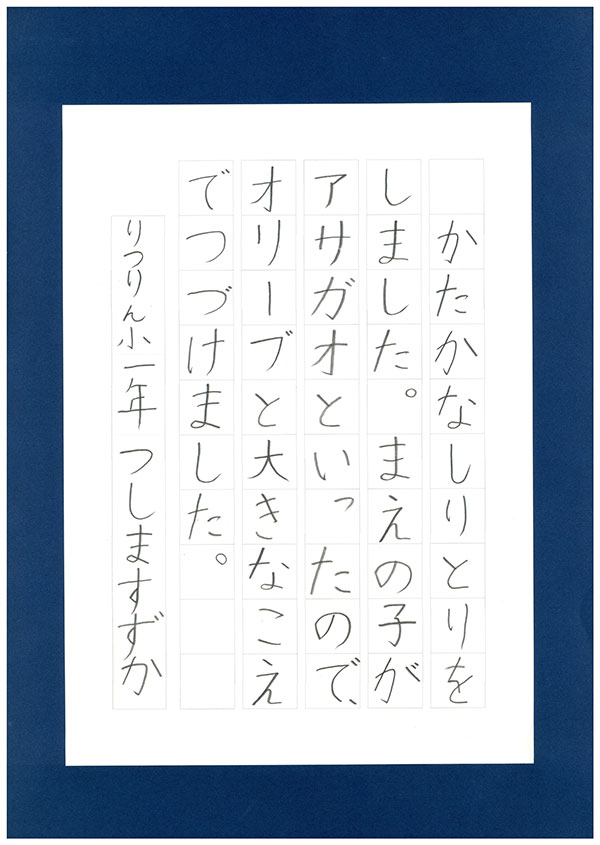 かたかなしりとりを
しました。まえの子が
アサガオといったので、
オリーブと大きなこえ
でつづけました。
りつりん小一年 つしますずか